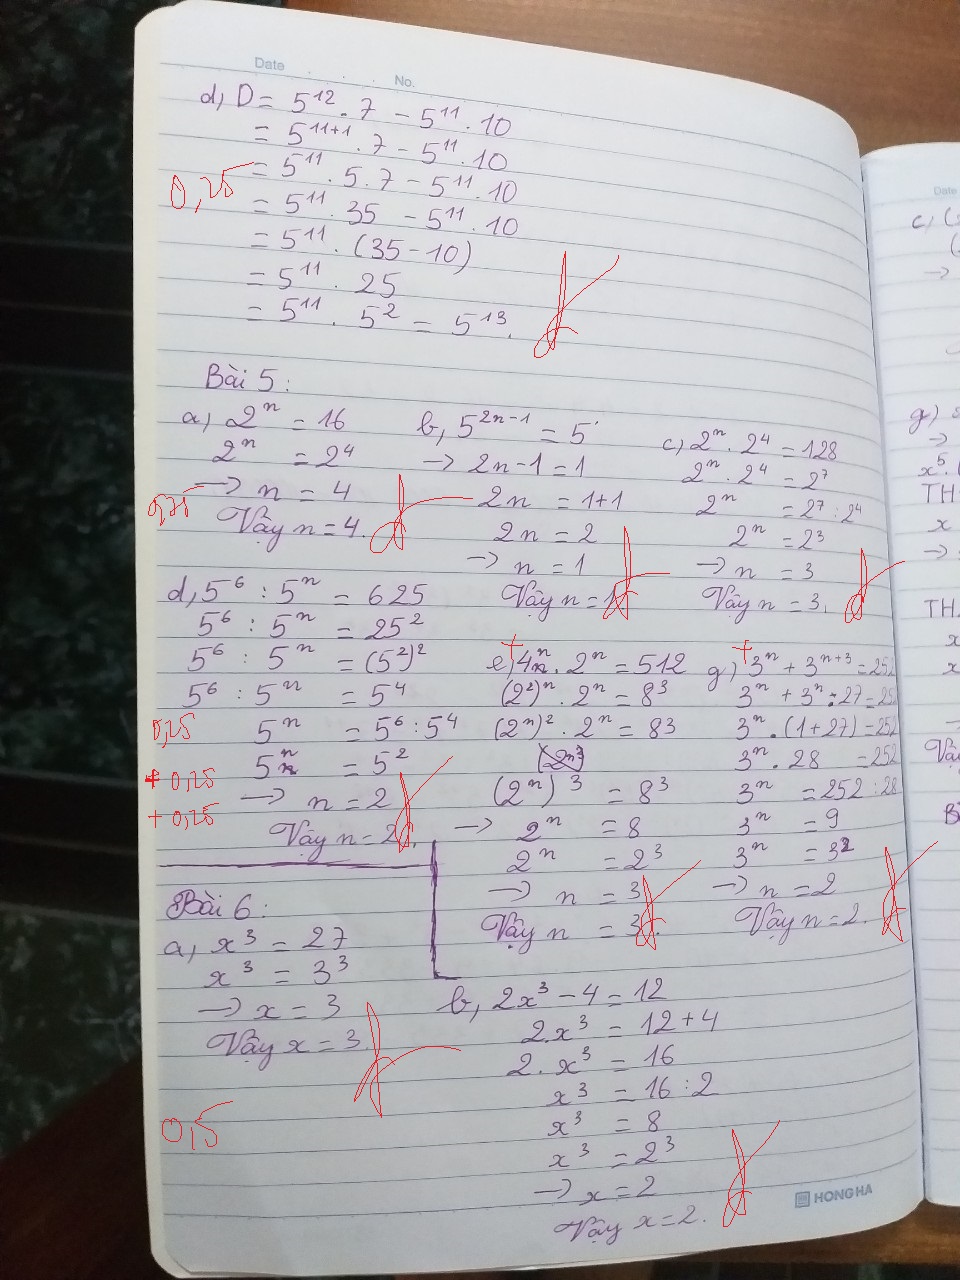 Date No.
d, D = 5¹² . 7 - 5¹¹ . 10
= 5¹¹⁺¹ . 7 - 5¹¹ . 10
= 5¹¹ . 5 . 7 - 5¹¹ . 10
0,25
= 5¹¹ . 35 - 5¹¹ . 10
= 5¹¹ . (35 - 10)
= 5¹¹ . 25
= 5¹¹ . 5² = 5¹³.
Bài 5:
a, 2ⁿ = 16
2ⁿ = 2⁴
→ n = 4
Vậy n = 4.
b, 5²ⁿ⁻¹ = 5
→ 2n-1 = 1
2n = 1+1
2n = 2
→ n = 1
Vậy n = 1
c, 2ⁿ . 2⁴ = 128
2ⁿ . 2⁴ = 2⁷
2ⁿ = 2⁷ : 2⁴
2ⁿ = 2³
→ n = 3
Vậy n = 3.
d, 5⁶ : 5ⁿ = 625
5⁶ : 5ⁿ = 25²
5⁶ : 5ⁿ = (5²)²
5⁶ : 5ⁿ = 5⁴
5ⁿ = 5⁶ : 5⁴
5ⁿ = 5²
→ n = 2
Vậy n = 2.
0,25
+ 0,25
+ 0,25
e, 4ⁿ . 2ⁿ = 512
(2²)ⁿ . 2ⁿ = 8³
(2ⁿ)² . 2ⁿ = 8³
(2ⁿ)³ = 8³
→ 2ⁿ = 8
2ⁿ = 2³
→ n = 3
Vậy n = 3.
g, 3ⁿ + 3ⁿ⁺³ = 252
3ⁿ + 3ⁿ . 27 = 252
3ⁿ . (1+27) = 252
3ⁿ . 28 = 252
3ⁿ = 252 : 28
3ⁿ = 9
3ⁿ = 3²
→ n = 2
Vậy n = 2.
Bài 6:
a, x³ = 27
x³ = 3³
→ x = 3
Vậy x = 3.
0,5
b, 2x³ - 4 = 12
2.x³ = 12 + 4
2.x³ = 16
x³ = 16 : 2
x³ = 8
x³ = 2³
→ x = 2
Vậy x = 2.
HONG HA
Date
c, (
→
g)
→
x⁵.
TH
x
→
TH
x
x
→
Vậy